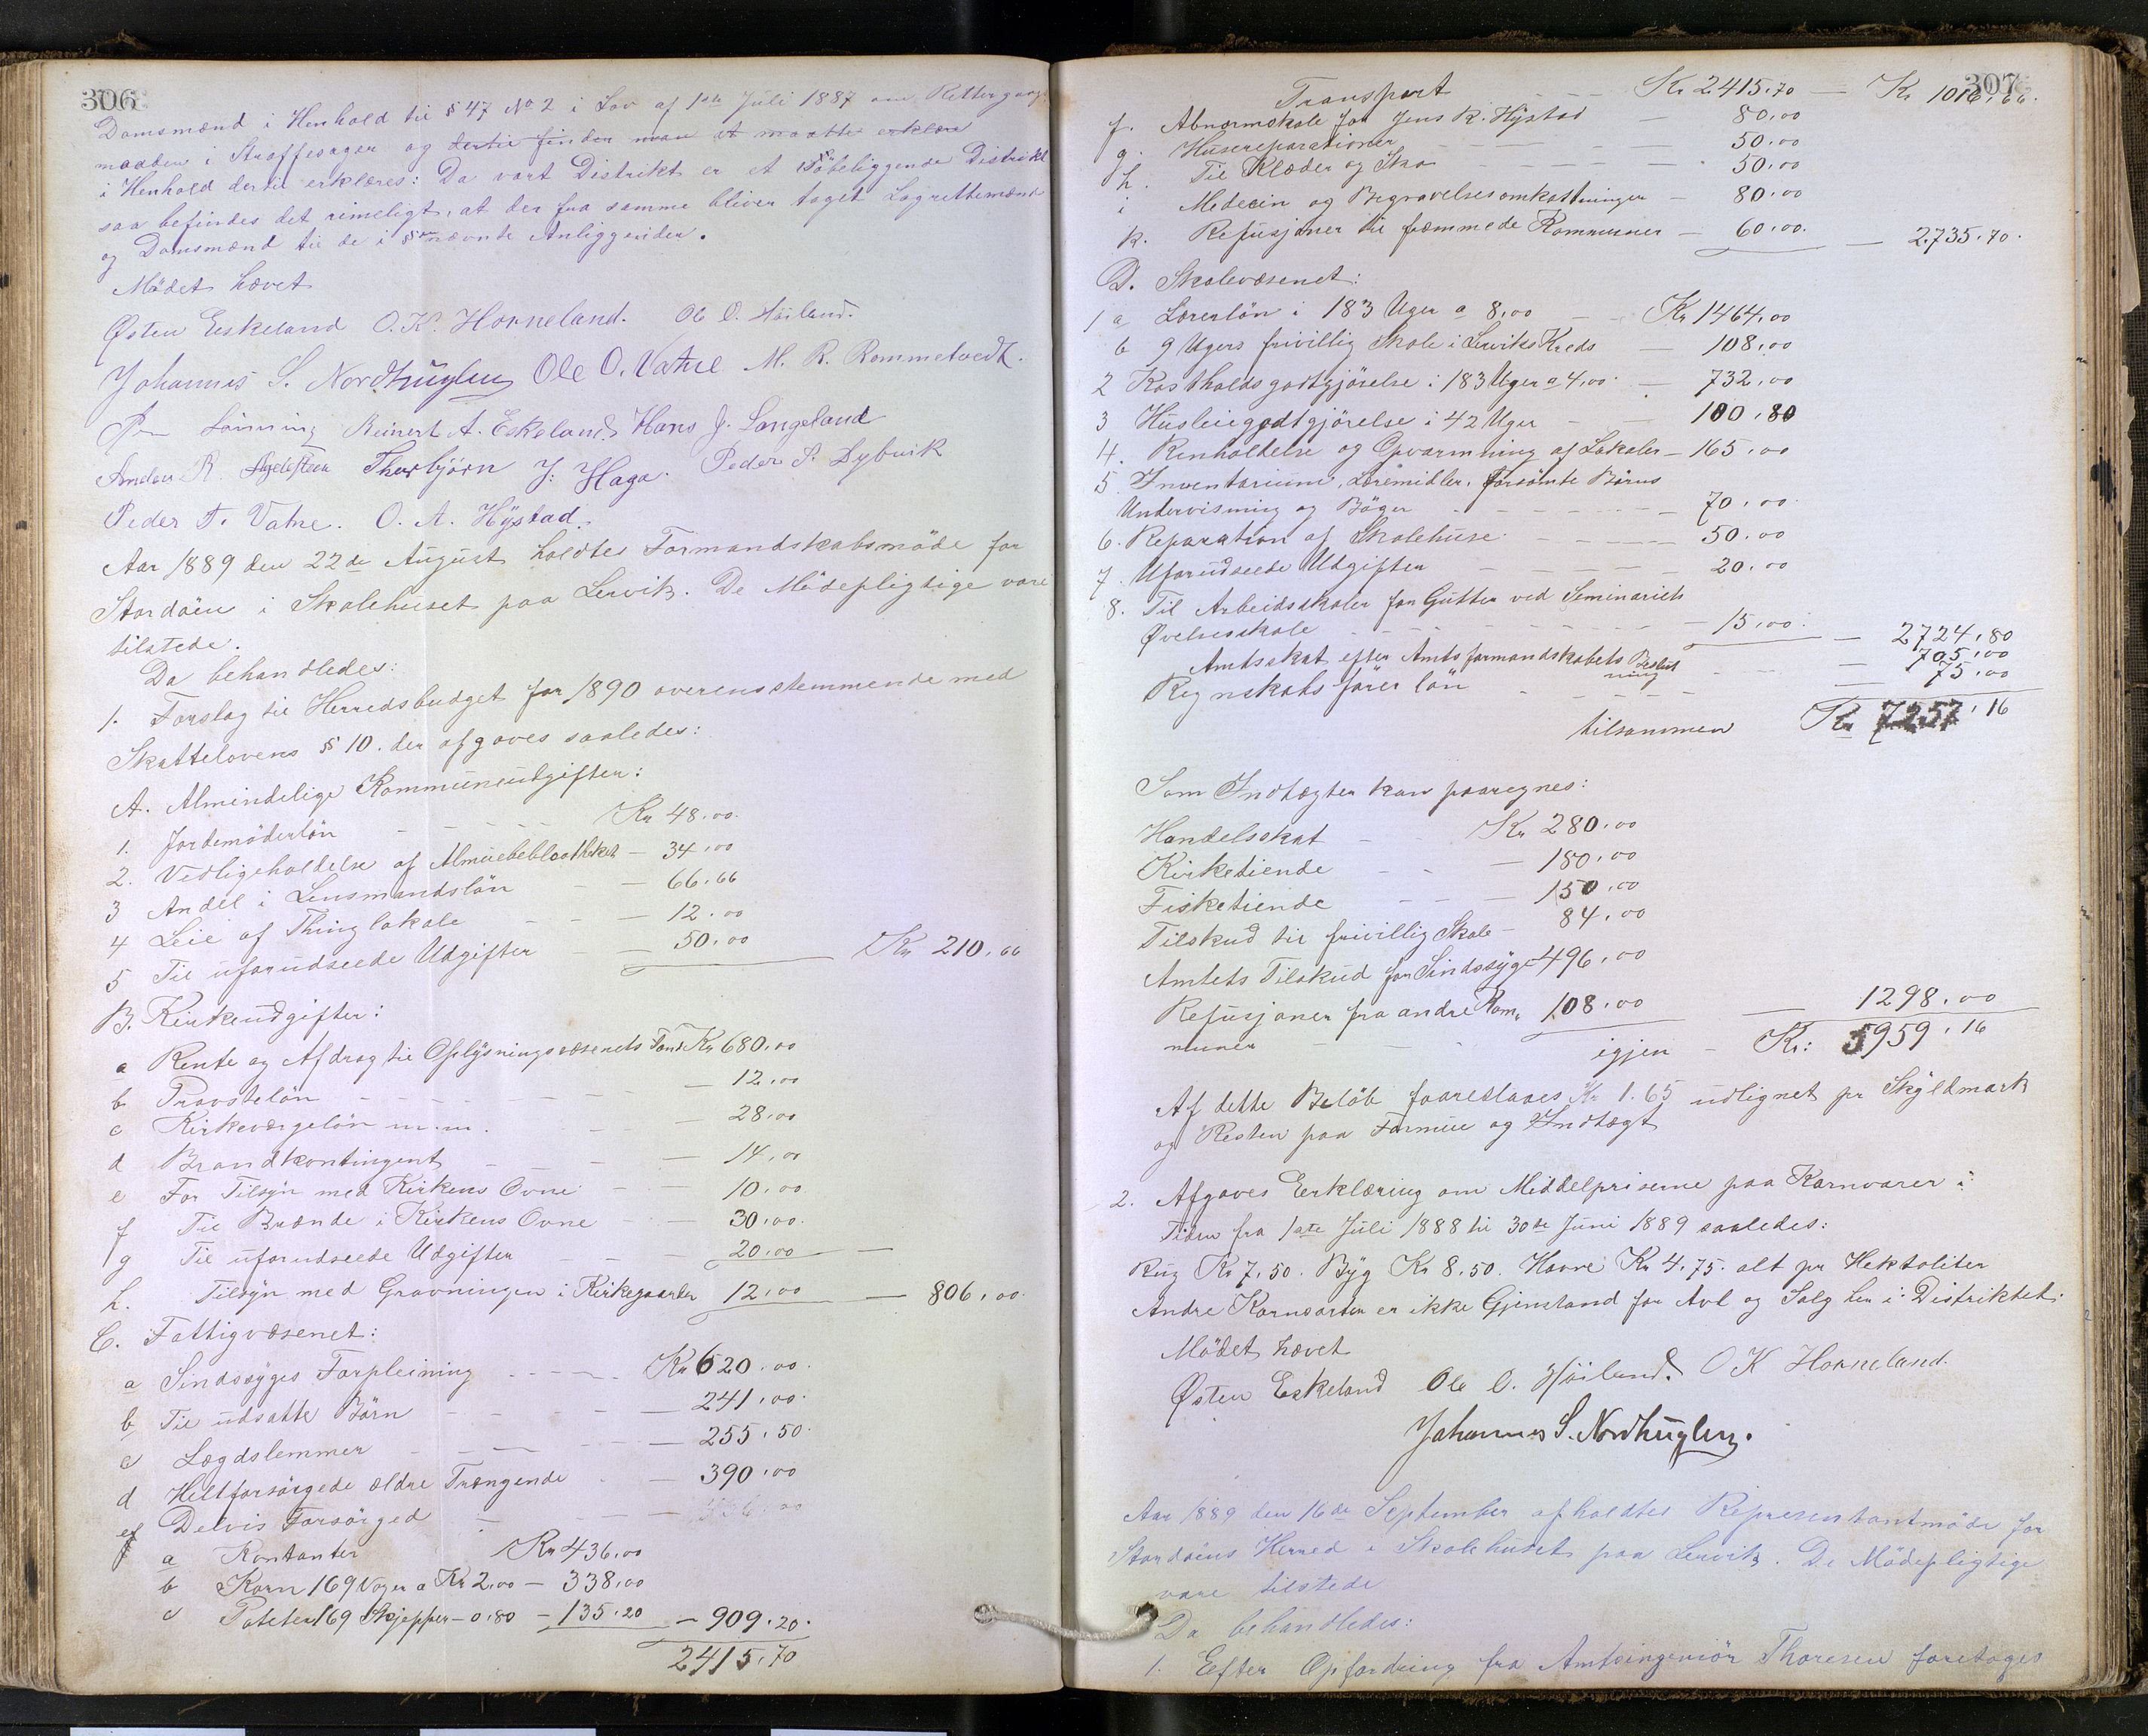 306
Domsmænd i Henhold til § 47 No 2 i Lov af 1ste Juli 1887 om Rettergangs
maaden i Straffesager og dertil finder man at maatte erklære
i Henhold dertil erklæres: Da vort Distrikt er et Söbeliggende Distrikt
saa befindes det rimeligt, at der fra samme bliver taget Lagrettemænd
og Domsmænd til de i § nævnte Anliggender.
Mödet hævet
Østen Eskeland O. K. Horneland. Ole O. Höiland.
Johannes S. Nordhuglen Ole O. Vatne M. R. Rommetvedt.
Lönning Reinert A. Eskeland Hans J. Langeland
Anders R. Agdesteen Thorbjörn J. Haga. Peder P. Dybvik
Peder T. Vatne. O. A. Hystad.
Aar 1889 den 22de August holdtes Formandskabsmöde for
Stordöen i Skolehuset paa Lervik. De Mödepligtige vare
tilstede.
Da behandledes:
1. Forslag til Herredsbudget for 1890 overensstemmende med
Skattelovens § 10. der afgaves saaledes:
A. Almindelige Kommuneudgifter:
1. Jordemöderlön Kr 48.00.
2. Vedligeholdelse af Almuebibliotheket – 34,00
3 Andel i Lensmandslön – 66.66
4 Leie af Thinglokale – 12.00
5 Til uforudseede Udgifter 50.00 Kr 210,66
B. Kirkeudgifter:
a Rente og Afdrag til Oplysningsvæsenets Fond Kr 680,00
b Provstelön – 12,00
c Kirkeværgelön m.m. – 28,00
d Brandkontingent – 14,00
e For Tilsyn med Kirkens Ovne – 10.00
f Til Brænde i Kirkens Ovne – 30,00.
g Til uforudseede Udgifter – 20.00 –
h. Tilsyn med Gravningen i Kirkegaarden 12,00 – 806,00.
C. Fattigvæsenet:
a Sindssyges Forpleining Kr 620.00.
b Til udsatte Börn – 241,00.
c Lægdslemmer – 255,50.
d Heltforsörgede ældre Trængende – 390,00
e Delvis Forsörged
a Kontanter Kr 436,00
b Korn 169 Voger a Kr 2.00 – 338,00
c Poteter 169 Skjepper – 0.80 – 135.20 – 909.20.
2415,70
307
Transport Kr 2415,70 – Kr 1016,66.
f. Abnormskole for Jens R. Hystad – 80,00
g. Husereparationer – 50.00
h. Til Klæder og Sko – 50.00
i Medecin og Begravelsesomkostninger – 80.00
k. Refusjoner til fræmmede Kommuner – 60.00. – 2735,70.
D. Skolevæsenet:
1 a Lærerlön i 183 Uger a 8,00 – Kr 1464,00
b 9 Ugers frivillig Skole i Lerviks Kreds – 108,00
2 Kostholdsgodtgjörelse i 183 Uger a 4,00. – 732,00
3 Husleiegodtgjörelse i 42 Uger – 100,80
4. Renholdelse og Opvarmning af Lokaler – 165,00
5. Inventarium, Læremidler, Forsömte Börns
Undervisning og Böger – 70,00.
6. Reparation af Skolehuse – 50.00
7. Uforudseede Udgifter – 20.00
8. Til Arbeidsskoler for Gutter ved Seminariets
Övelsesskole – 15,00. – 2724,80
Amtsskat efter Amtsformandskabets Beslut
ning – 705,00
Regnskabsförerlön – 75,00
tilsammen Kr 7257,16
Som Indtægter kan paaregnes:
Handelsskat – Kr 280.00
Kirketiende – 180,00
Fisketiende – 150,00
Tilskud til frivillig Skole – 84,00
Amtets Tilskud for Sindssyge 496,00
Refusjoner fra andre Kom, 108.00 – 1298.00
muner igjen – Kr: 5959,16
Af dette Belöb foareslaaes Kr 1.65 udlignet pr Skyldmark
og Resten paa Formue og Indtægt
2. Afgaves Erklæring om Middelpriserne paa Kornvarer i
Tiden fra 1ste Juli 1888 til 30te Juni 1889 saaledes:
Rug Kr 7,50. Byg Kr 8,50. Havre Kr 4,75. alt pr Hektoliter
Andre Kornsorter er ikke Gjenstand for Avl og Salg her i Distriktet.
Mödet hævet
Østen Eskeland Ole O. Höiland. O K Horneland.
Johannes S. Nordhuglen.
Aar 1889 den 16de September afholdtes Representantmöde for
Stordöens Herred i Skolehuset paa Lervik. De Mödepligtige
vare tilstede
Da behandledes:
1. Efter Opfordring fra Amtsingeniör Thoresen foretoges